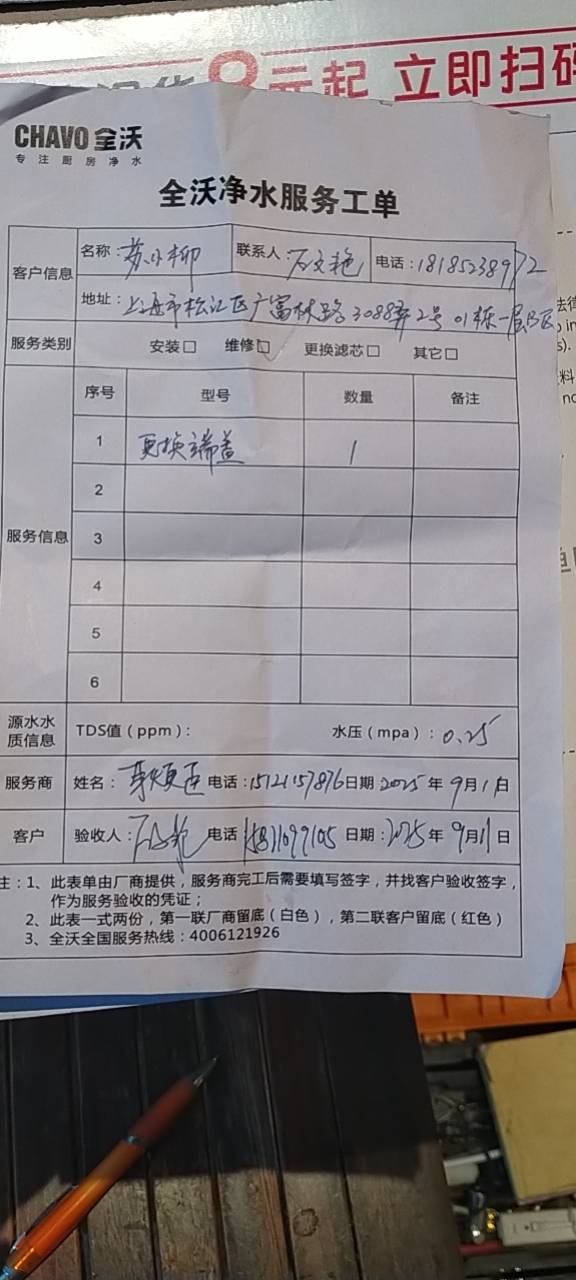 元起 立即扫码
CHAVO 全沃
专注厨房净水
全沃净水服务工单
客户信息
名称：苏小柳 联系人：石文艳 电话：18185238972
地址：上海市松江区广富林路3088弄2号01栋一层B区
服务类别 安装□ 维修□ 更换滤芯□ 其它□
服务信息
序号 型号 数量 备注
1 更换端盖 1
2
3
4
5
6
源水水质信息 TDS值（ppm）： 水压（mpa）：0.25
服务商 姓名： 电话：15121157876 日期 2025年9月11日
客户 验收人： 电话 15821099105 日期：2025年9月11日
注：1、此表单由厂商提供，服务商完工后需要填写签字，并找客户验收签字，
作为服务验收的凭证；
2、此表一式两份，第一联厂商留底（白色），第二联客户留底（红色）
3、全沃全国服务热线：4006121926